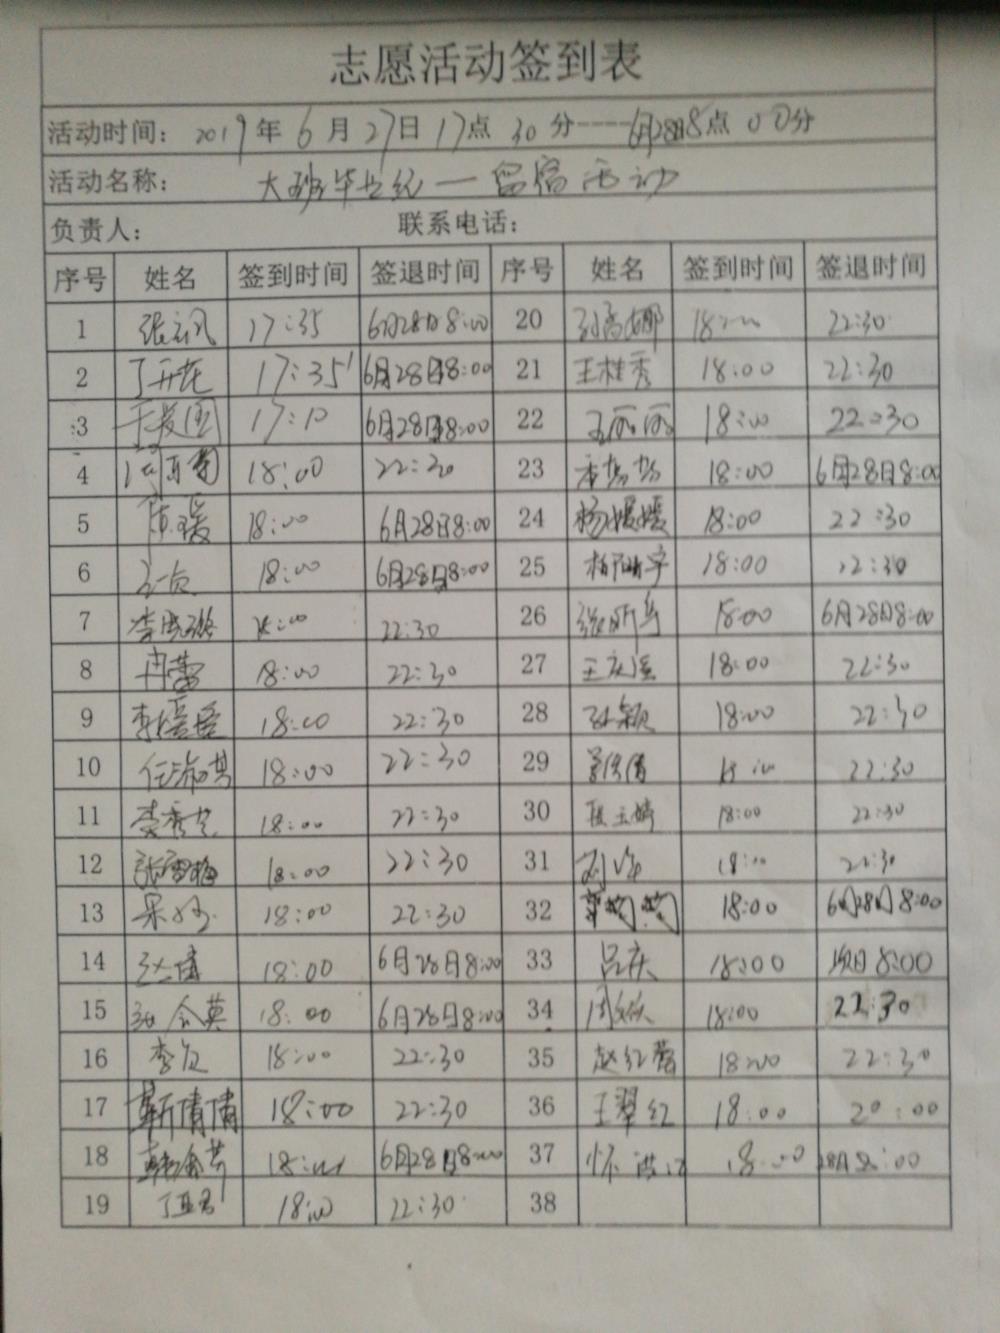 志愿活动签到表
活动时间: 2019年6月27日17点30分----6月28日8点00分
活动名称: 大班毕业纪一留宿活动
负责人: 联系电话:
序号 姓名 签到时间 签退时间 序号 姓名 签到时间 签退时间
1 17:35 6月28日8:00 20 18:00 22:30
2 丁开花 17:35 6月28日8:00 21 王桂秀 18:00 22:30
3 于爱国 17:10 6月28日8:00 22 王丽丽 18:00 22:30
4 18:00 22:30 23 18:00 6月28日8:00
5 陈瑗 18:00 6月28日8:00 24 杨媛媛 18:00 22:30
6 18:00 6月28日8:00 25 18:00 22:30
7 18:00 22:30 26 18:00 6月28日8:00
8 冉蕾 18:00 22:30 27 18:00 22:30
9 李媛媛 18:00 22:30 28 孙颖 18:00 22:30
10 任淑其 18:00 22:30 29 18:00 22:30
11 18:00 22:30 30 18:00 22:30
12 张雪梅 18:00 22:30 31 18:00 22:30
13 18:00 22:30 32 18:00 6月28日8:00
14 18:00 6月28日8:00 33 吕庆 18:00 次日8:00
15 18:00 6月28日8:00 34 18:00 22:30
16 18:00 22:30 35 赵红蕾 18:00 22:30
17 靳倩倩 18:00 22:30 36 王翠红 18:00 20:00
18 18:00 6月28日8:00 37 18:00 28日8:00
19 18:00 22:30 38